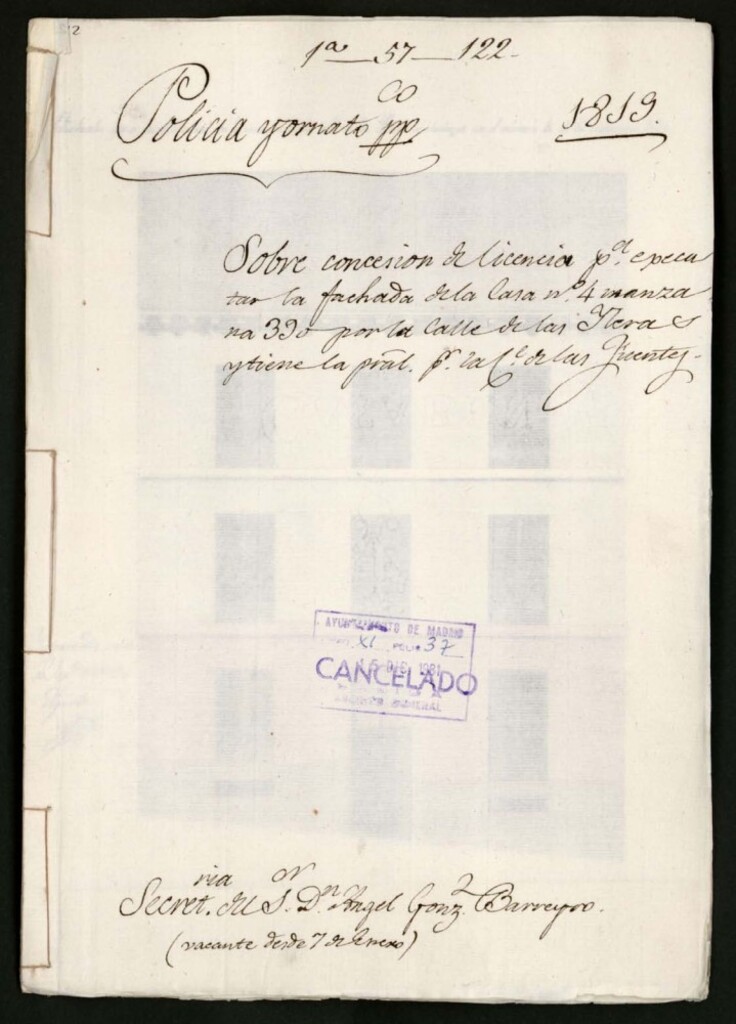 1ª - 57 - 122-
Policia y ornato pp.co
1819.
Sobre concesion de licencia p.a execu
tar la fachada de la Casa n.º 4 manza
na 390 por la Calle de las Yeras
y tiene la pral. p.r la C.e de las Fuentes.
AYUNTAMIENTO DE MADRID
XI 37
15 DIC. 1981
CANCELADO
ARCHIVO GENERAL
Secret.ria del S.or D.n Angel Gonz.z Barreyro.
(vacante desde 7 de Enero)